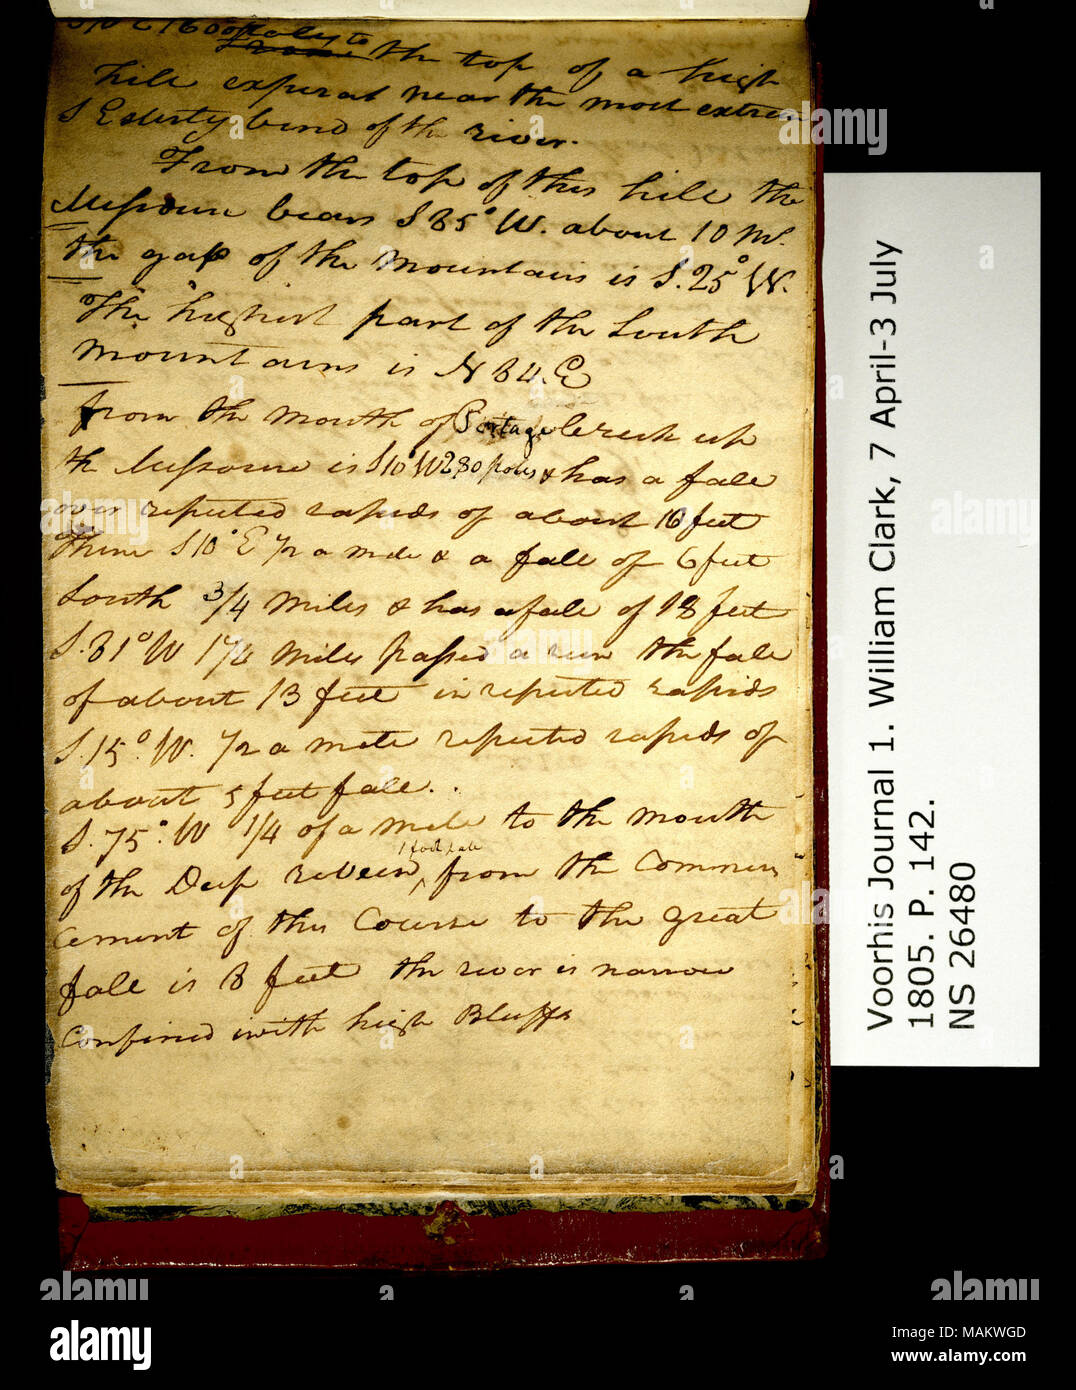 1600 poles to the top of a high
hill experat near the most extrem
S Esterly bend of the river.
From the top of this hill the
Missoure bears S 85° W. about 10 ms.
the gap of the mountains is S. 25° W.
The highest part of the South
mountains is N 84. E
from the mouth of Portage Creek up
the Missoure is S 10° W 280 poles & has a fall
over repeeted rapids of about 16 feet
Thence S 10° E 1/2 a mile & a fall of 6 feet
South 3/4 miles & has a fall of 18 feet
S. 81° W 1 1/4 miles passed a run the fall
of about 13 feet in repeeted rapids
S. 15° W. 1/2 a mile repeeted rapids of
about 5 feet fall..
S. 75° W 1/4 of a mile to the mouth
1 foot fall
of the Deep reveen, from the Commen
cement of this Course to the great
fall is 8 feet the river is narrow
Confined with high Bluffs
Voorhis Journal 1. William Clark, 7 April-3 July
1805. P. 142.
NS 26480
alamy
alamy
Image ID: MAKWGD
www.alamy.com